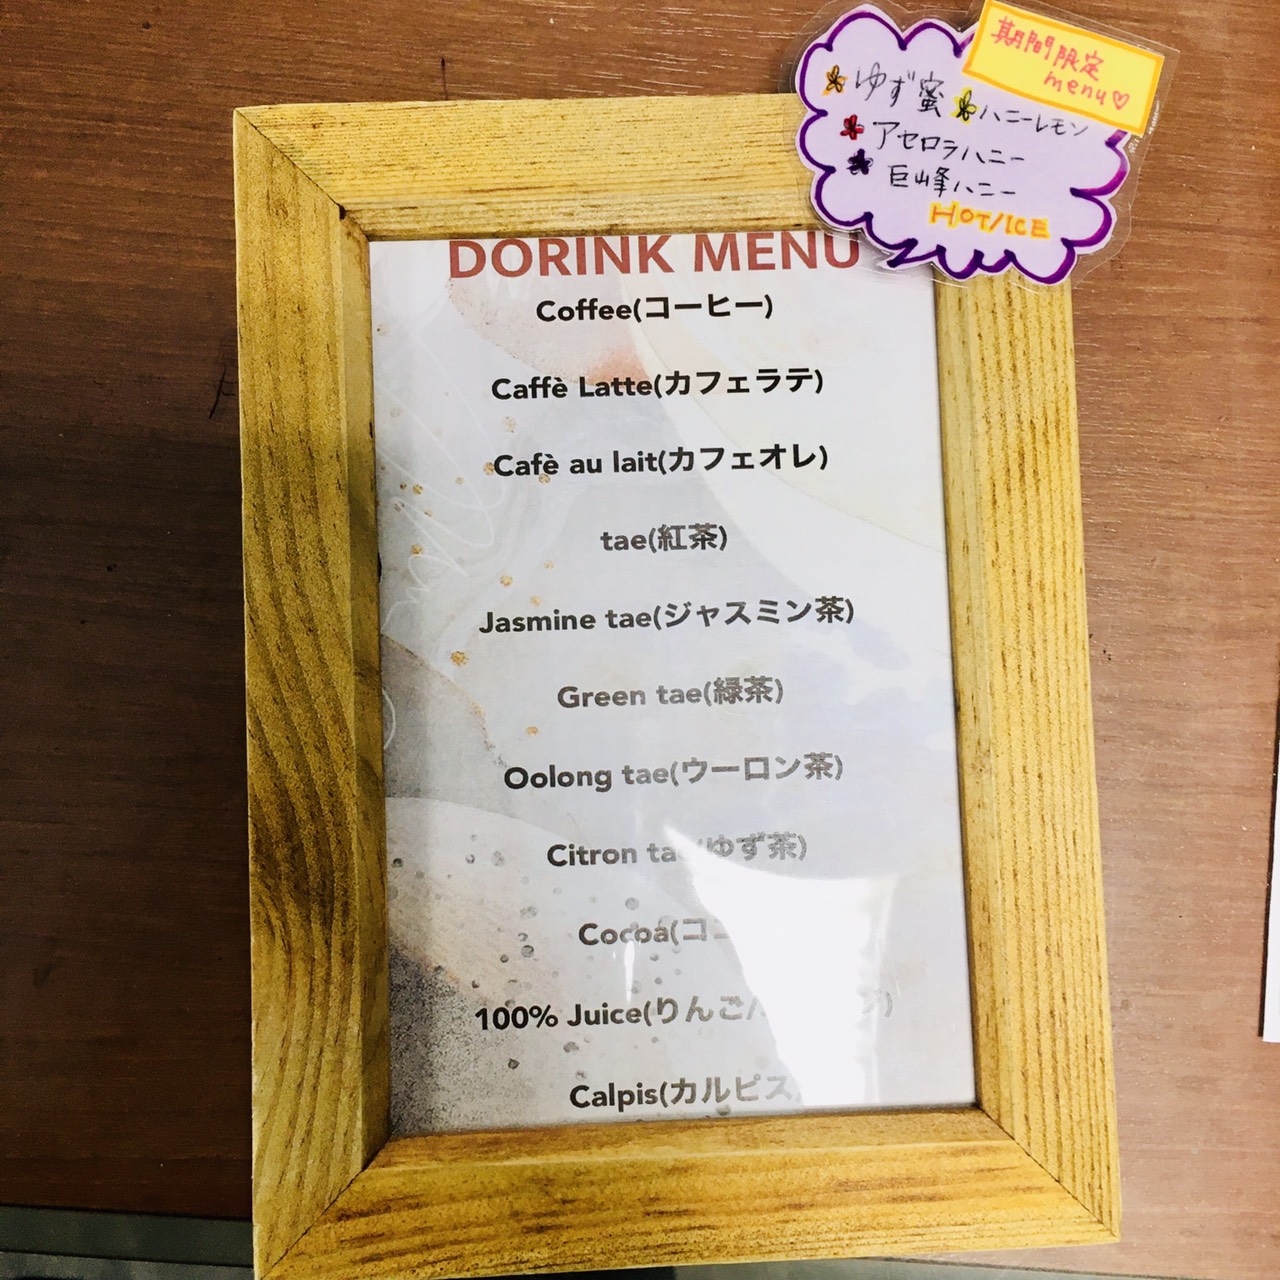 期間限定
menu♡
ゆず蜜 ハニーレモン
アセロラハニー
巨峰ハニー
HOT/ICE
DORINK MENU
Coffee(コーヒー)
Caffè Latte(カフェラテ)
Cafè au lait(カフェオレ)
tae(紅茶)
Jasmine tae(ジャスミン茶)
Green tae(緑茶)
Oolong tae(ウーロン茶)
Citron tae(ゆず茶)
Cocoa(
100% Juice(りんご/
Calpis(カルピス)